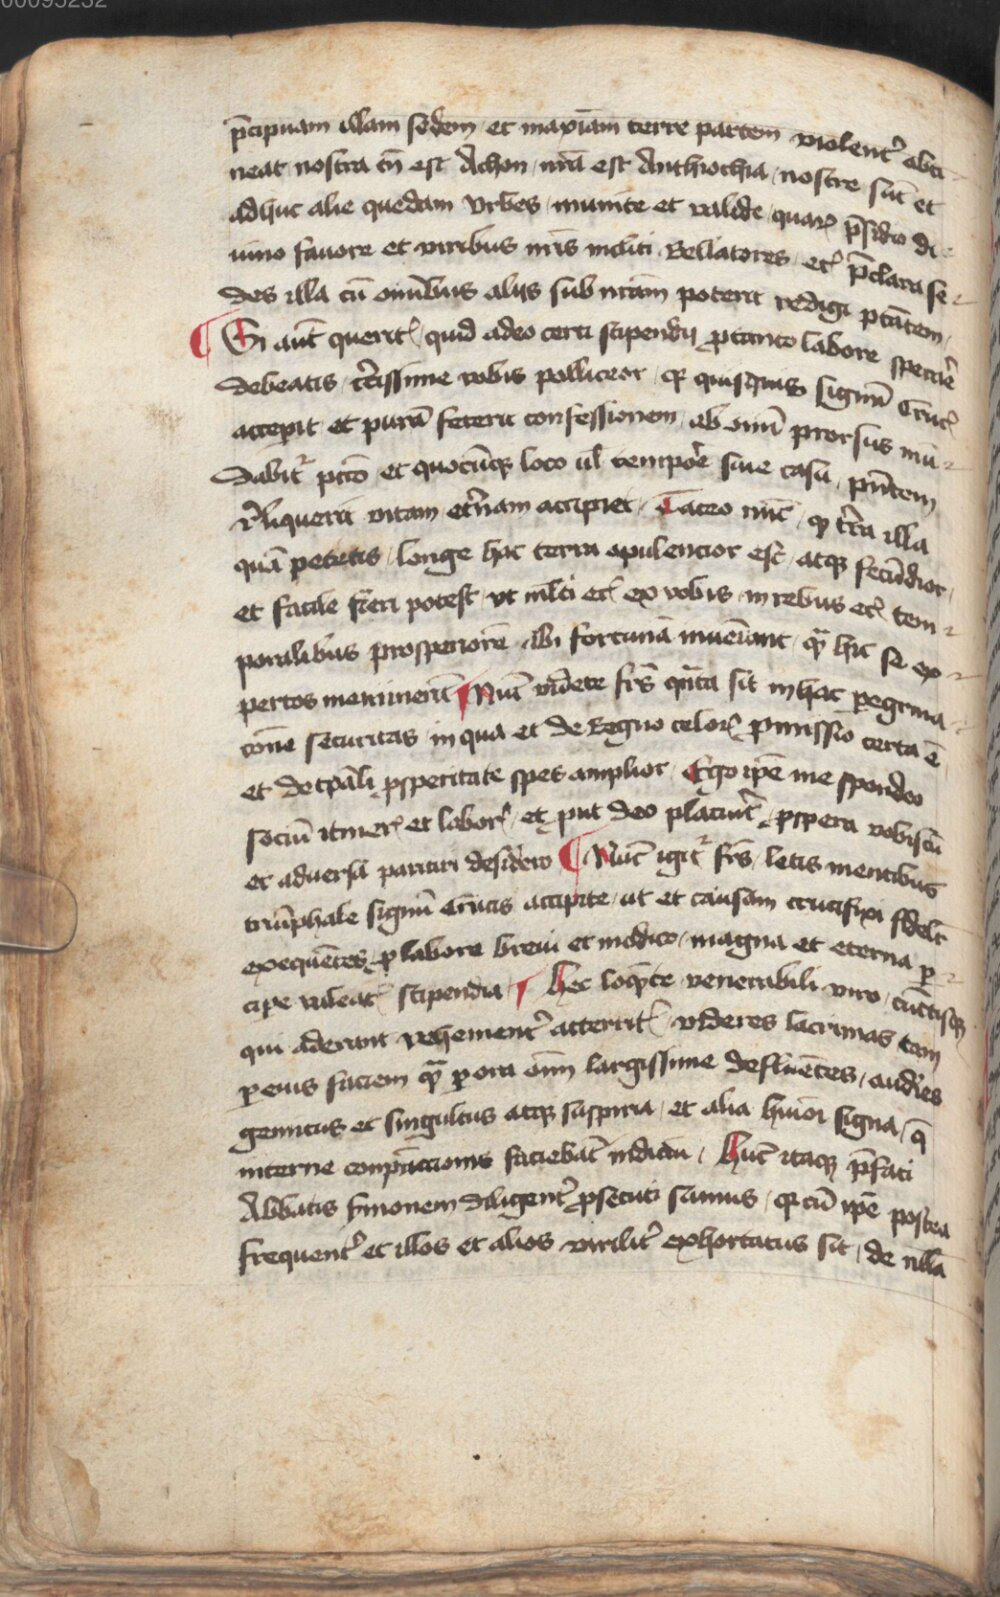 00095232
p̄cipuam illam sedem et maxiam terre partem violent᷒ obti
neat nostra tn̄ est Achon nr̄a est Anthiochia nostre sūt et
adhuc alie quedam vrbes munite et valide quaꝝ p̄sidio di
uino fauore et viribus nr̄is incliti Bellatores etc̄ p̄clara se
des illa cū omībus alijs sub nr̄am poterit redigi ptātem
¶ Si aūt querit᷒ quid adeo certi stipendij ꝓ tanto labore sperare
debeatis c̄tissime vobis polliceor qꝫ quisquis signū Cruc᷒
accepit et purā fecerit confessionem ab om̄i prorsus mū
dabit᷒ pctō et quocūqꝫ loco ul̄ tempore siue casu pn̄tem
r̄liquerit vitam et̄nam accipiet Taceo nūc ꝙ t̄ra illa
quā petitis longe hac terra opulencior est atqꝫ fecūdior
et facile fieri potest vt ml̄ti etc̄ ex vobis in rebus etc̄ tem
poralibus prosperiorē ibi fortunā inueīant qꝫ hic se ex
pertos meminerūt ¶ Nūc videte frs̄ qn̄ta sit in hac peregrina
cōne securitas in qua et de Regno celoꝝ ꝓmissio certa ē
et de tpāli ꝓsperitate spes amplior Ego ipē me spondeo
sociū itiner᷒ et labor᷒ et put deo placuīt ꝓspera vobiscū
et aduersa partiri desidero ¶ Nūc igit᷒ frs̄ letis mentibus
triūphale signū Crucis accipite ut et causam crucifixi fidelr̄
exequētes ꝓ labore breui et modico magna et eterna ꝑ
cipe valeat᷒ stipendia ¶ Hec loqn̄te venerabili viro cūctisqꝫ
qui aderant vehement᷒ atterrit᷒ videres lacrimas tam
ꝑ eius faciem qꝫ ꝑ ora oīm largissime defluētes audires
gemitus et singultus atqꝫ suspiria et alia huīoi signa q̄
interne conpūccionis faciebāt indiciū Hūc itaqꝫ p̄fati
Abbatis s̄monem diligent᷒ ꝓsecuti sumus qꝫ cū ipē postea
frequent᷒ et illos et alios virilit᷒ exhortatus sit de nll̄a